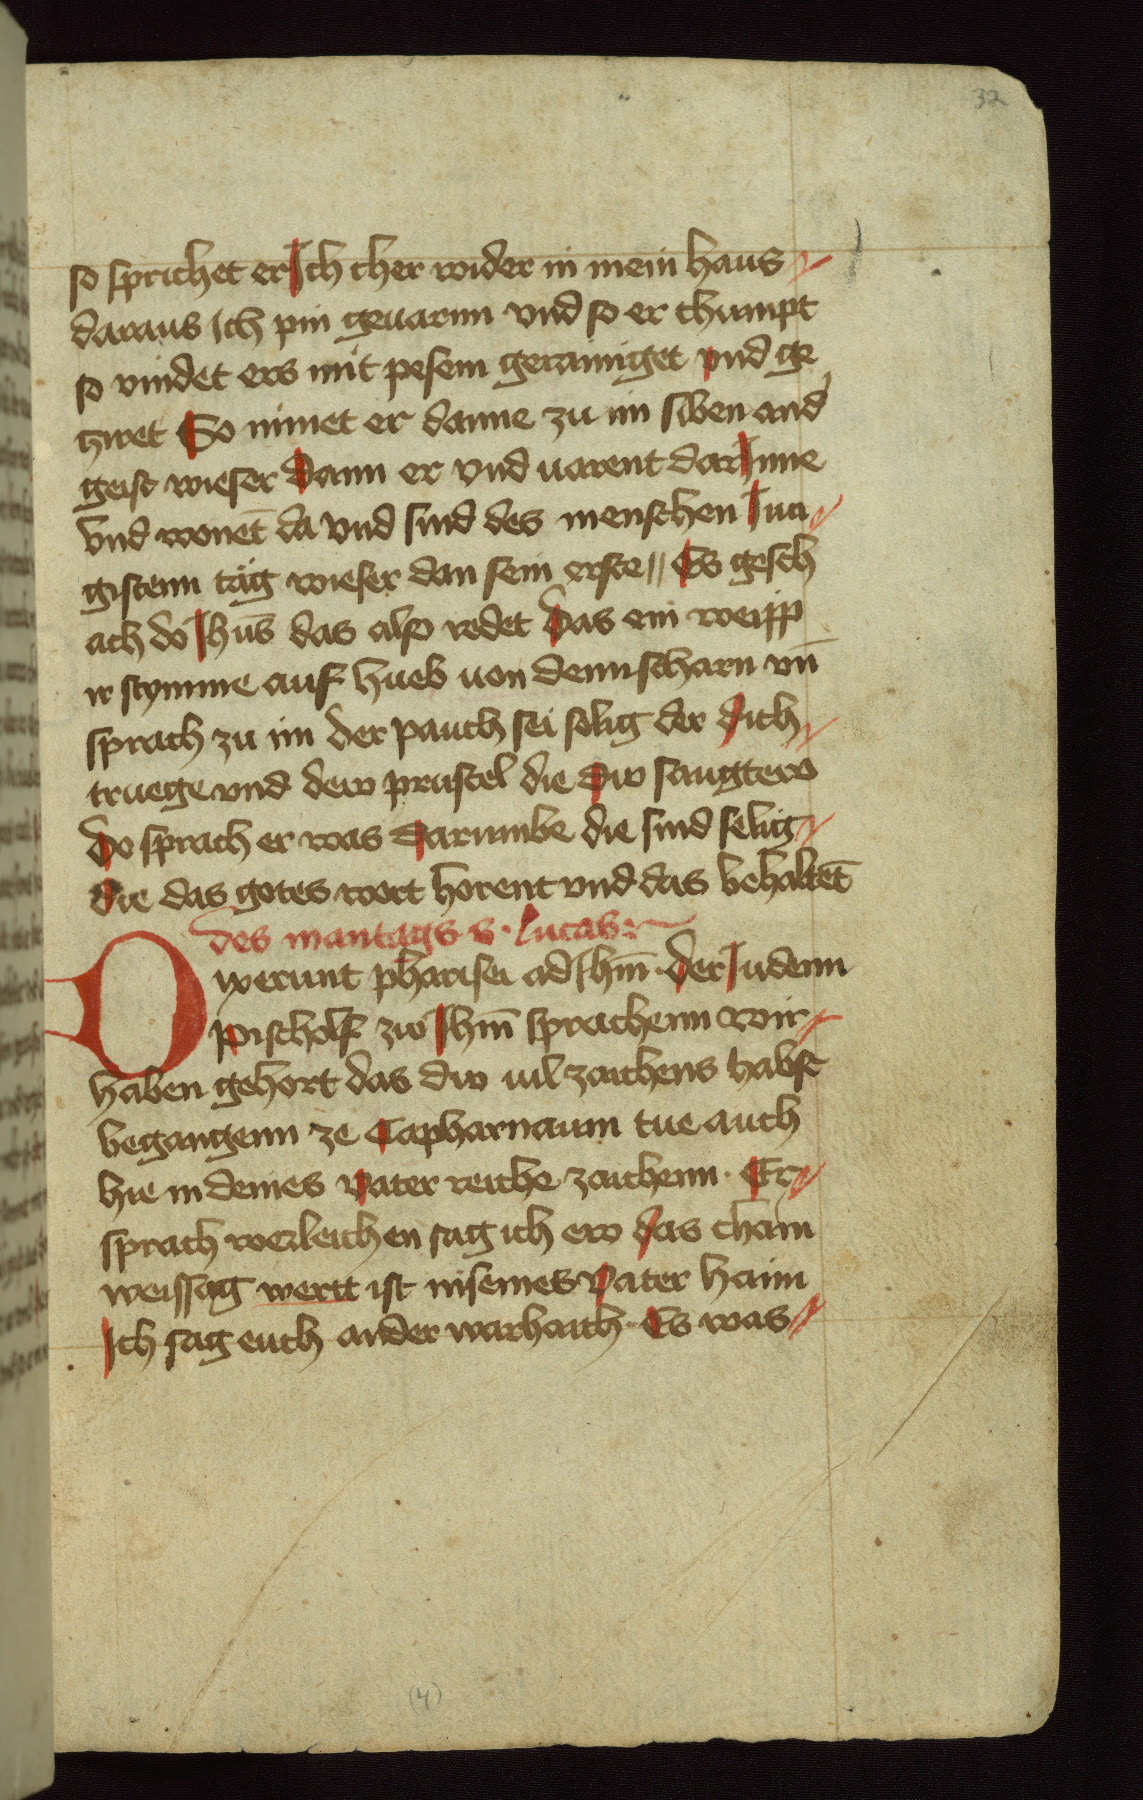 32
so sprichet er Ich cher wider in mein haus
daraus Ich pin geuarnn vnd so er chumpt
so vindet ers mit pesem gerainiget vnd ge
ziret So nimet er danne zu im siben and
geist wieser Dann er vnd uarent dar Inne
vnd wonēt da vnd sind des menschen Iun
gistenn täg wieser dan sein erste Es gesch
ach do Ihūs das also redet Das ein weipp
ir stymme auf hueb uon denn scharn vn̄
sprach zu im der pauch sei selig der dich
truege vnd dew prustel die Dw saugtew
Do sprach er was Darumbe die sind selig
die das gotes wort horent vnd das behaltēt
des mantags s. Lucas
Dixerunt pharisei ad Ihm̄ der Iudenn
pischolf zw Ihm̄ sprachenn wir
haben gehort das dw uil zaichens habst
begangenn ze Capharnaum tue auch
hie in deines vater reiche zaichenn. Er
sprach werleichen sag ich ew das chain
weissag wertt ist in seines vater haim
Ich sag euch ander warhaith. Es was
(4)